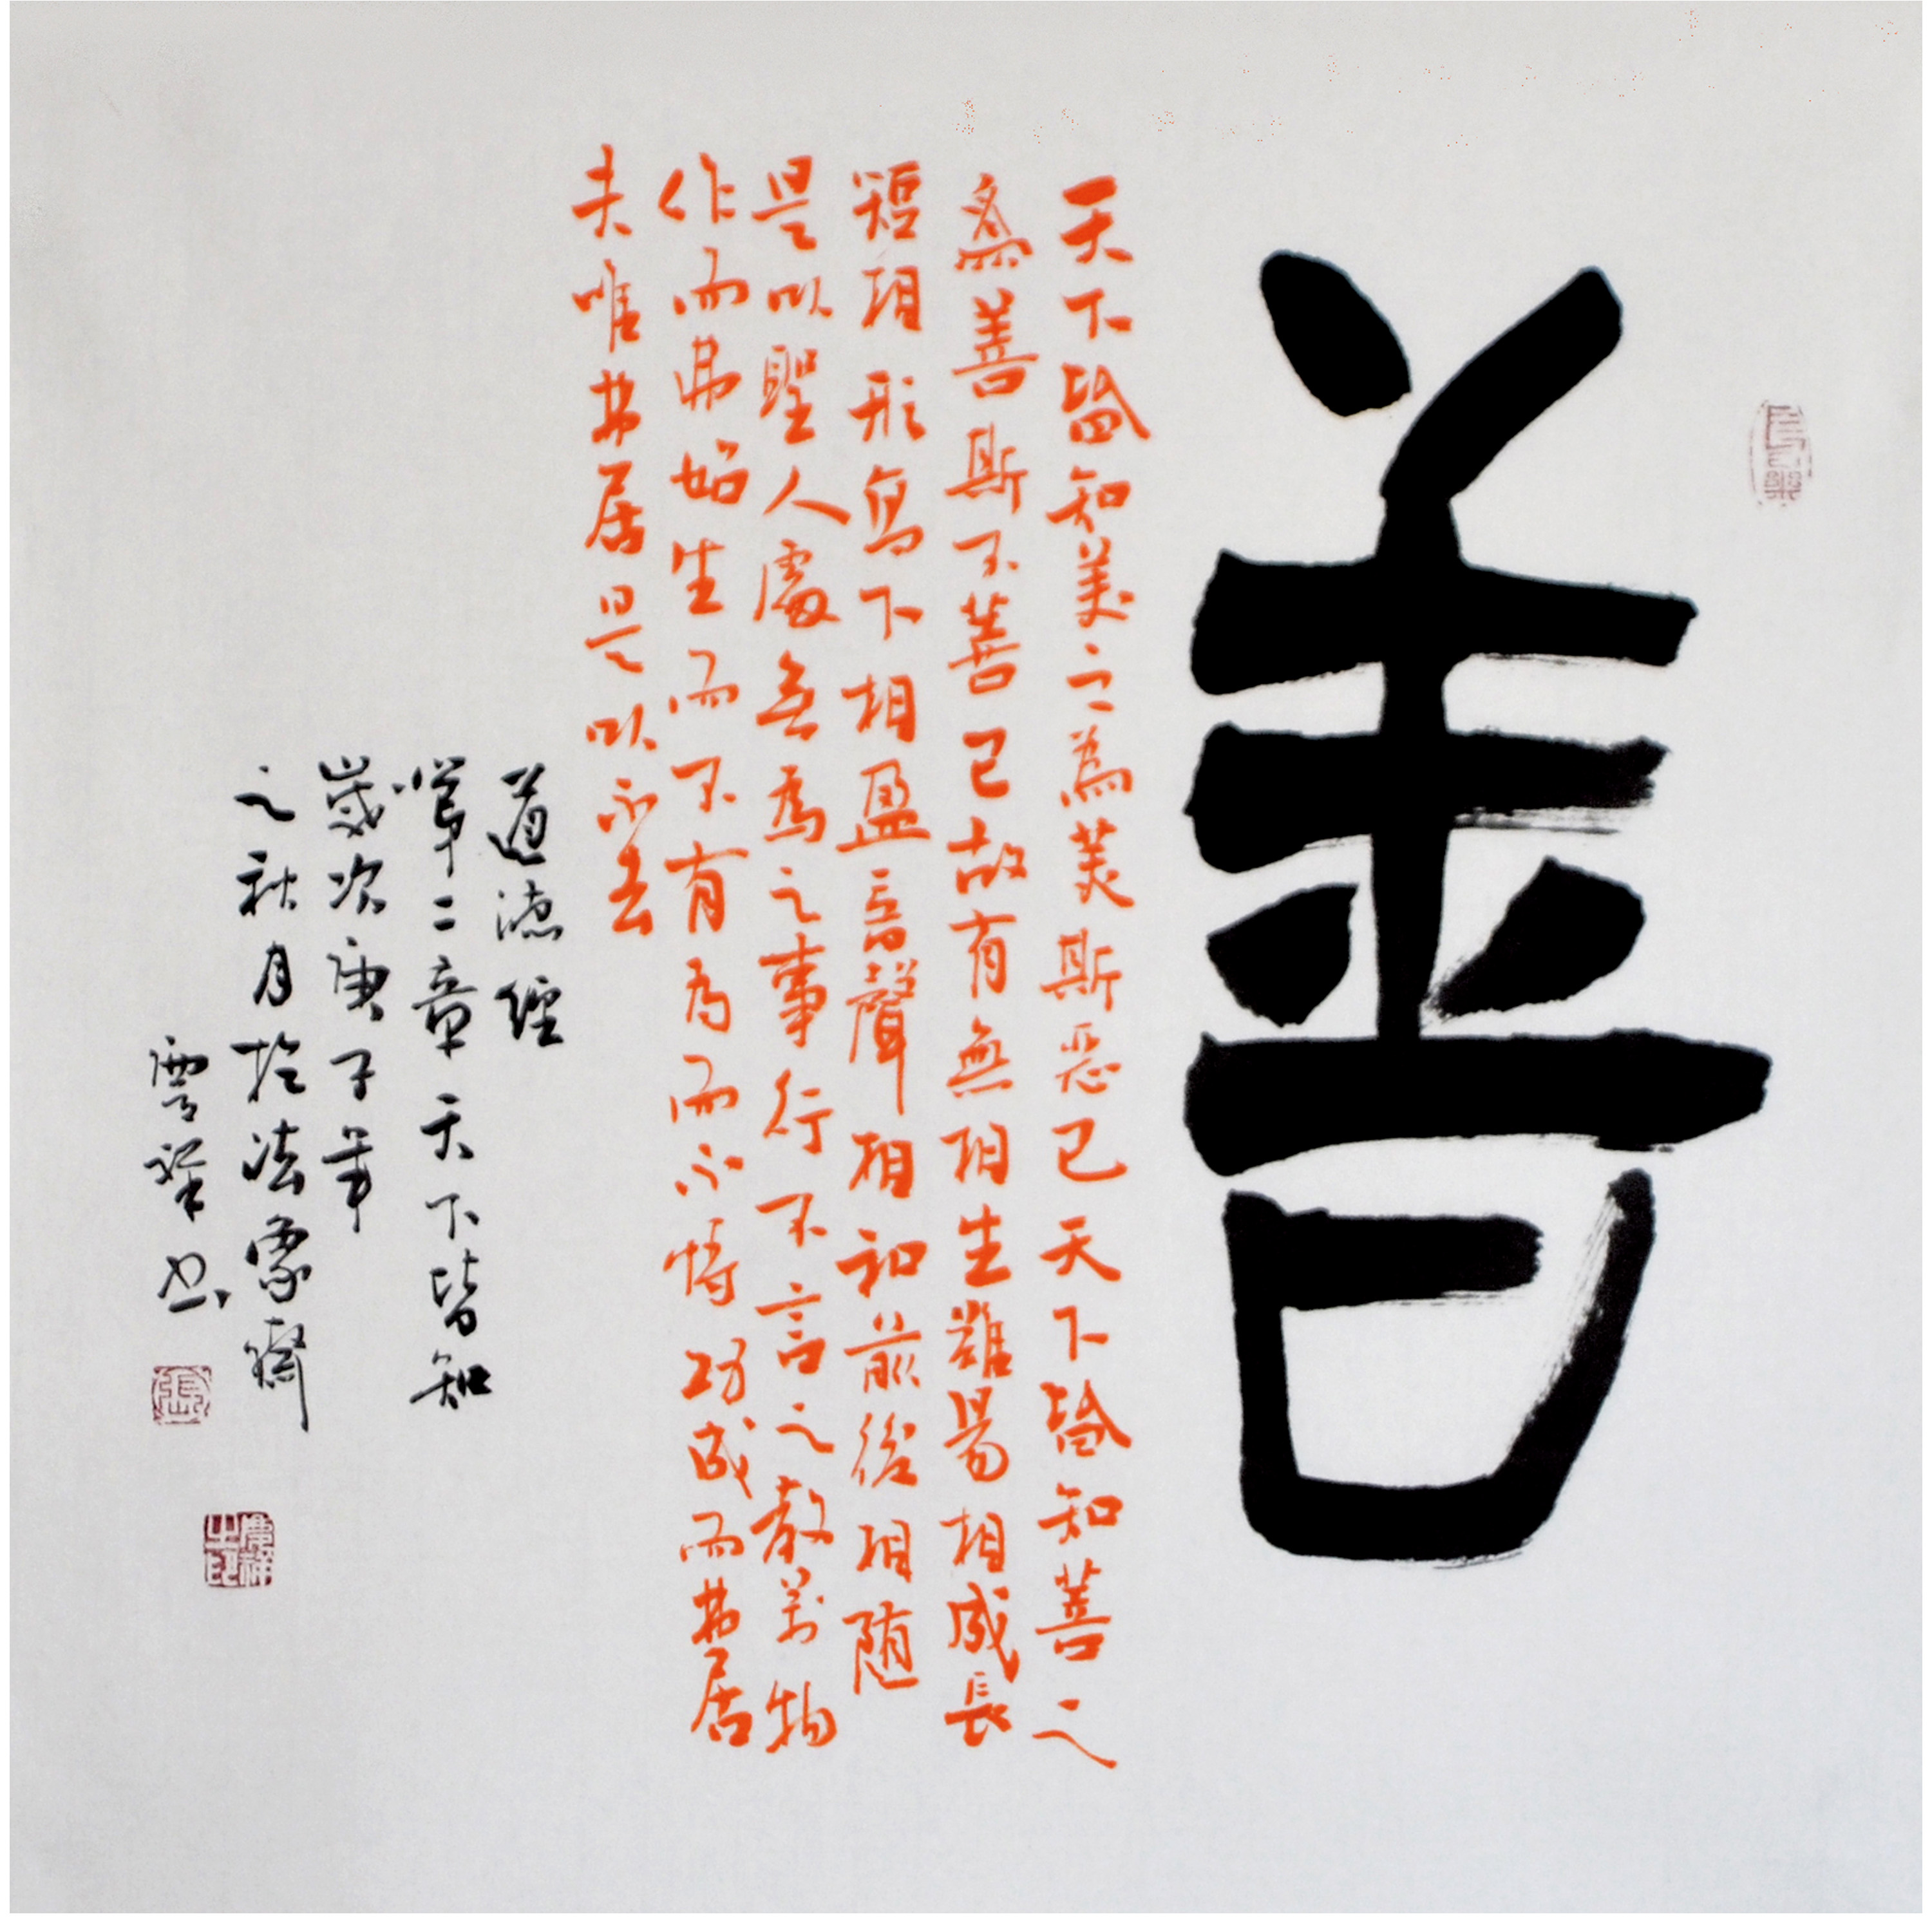 善
天下皆知美之為美斯惡已天下皆知善之
為善斯不善已故有無相生難易相成長
短相形高下相盈音聲相和前後相随
是以聖人處無為之事行不言之教萬物
作而弗始生而不有為而不恃功成而弗居
夫唯弗居是以不去
道德經
第二章天下皆知
歲次庚子年
之秋月於法象齋
書